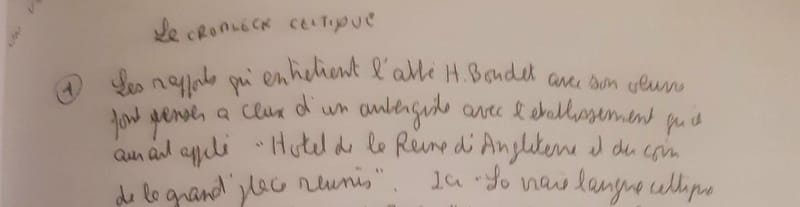 Le CROMLECK CELTIQUE
1 Les rapports qu'entretient l'abbé H. Boudet avec son œuvre
font penser a ceux d'un aubergiste avec l'etablissement qu'il
aurait appelé "Hotel de la Reine d'Angleterre et du coin
de la grand'place reunis". Ici - La vraie langue celtique